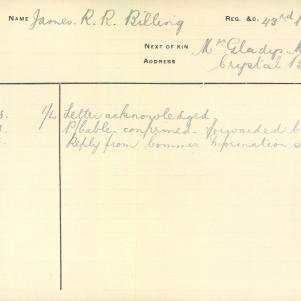 NAME James. R. R. Billing REG. &C. 43rd
NEXT OF KIN Mrs Gladys
ADDRESS Crystal
1/2 Letter acknowledged.
P/cable, confirmed. forwarded
Reply from